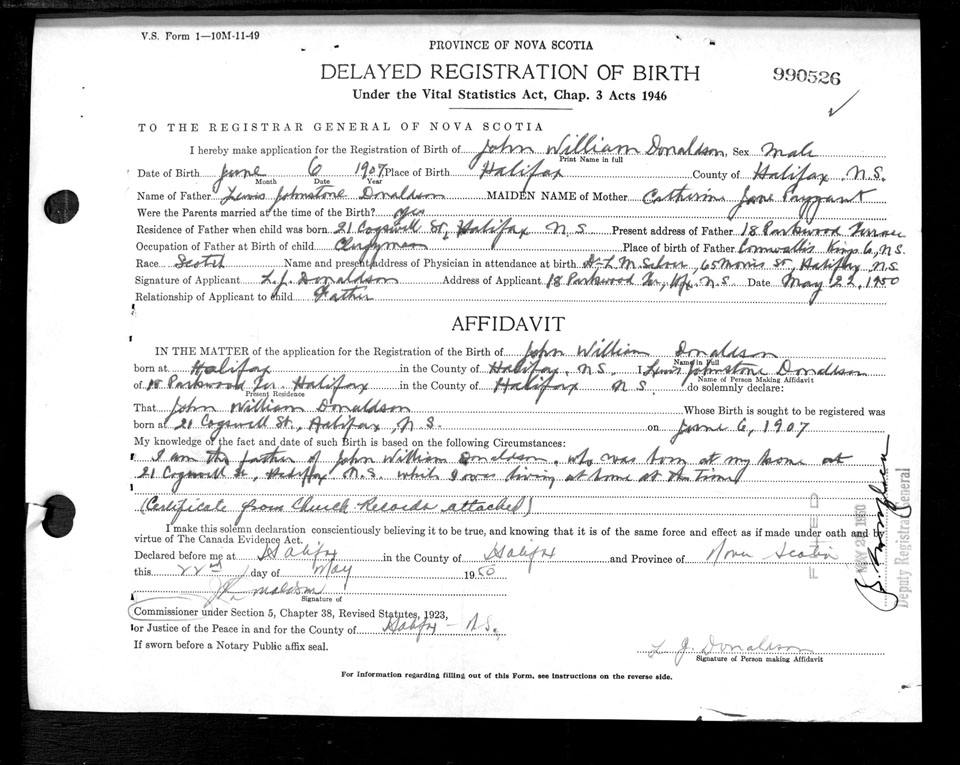 V.S. Form 1—10M-11-49
PROVINCE OF NOVA SCOTIA
DELAYED REGISTRATION OF BIRTH
990526
Under the Vital Statistics Act, Chap. 3 Acts 1946
TO THE REGISTRAR GENERAL OF NOVA SCOTIA
I hereby make application for the Registration of Birth of John William Donaldson, Sex Male
Print Name in full
Date of Birth June 6 1907 Place of Birth Halifax County of Halifax N.S.
Month Date Year
Name of Father Lewis Johnstone Donaldson MAIDEN NAME of Mother Catherine Jane Payzant
Were the Parents married at the time of the Birth? Yes
Residence of Father when child was born 21 Cogswell St, Halifax N S Present address of Father 18 Parkwood Terrace
Occupation of Father at Birth of child Clergyman Place of Birth of Father Cornwallis Kings Co, N.S.
Race Scotch Name and present address of Physician in attendance at birth Dr L. M. Silver, 65 Morris St, Halifax, N.S.
Signature of Applicant L. J. Donaldson Address of Applicant 18 Parkwood Ter, Hfx. N.S. Date May 22, 1950
Relationship of Applicant to child Father
AFFIDAVIT
IN THE MATTER of the application for the Registration of the Birth of John William Donaldson
Name in Full
born at Halifax in the County of Halifax, N.S., I Lewis Johnstone Donaldson
Name of Person Making Affidavit
of 18 Parkwood Ter. Halifax in the County of Halifax N S do solemnly declare:
Present Residence
That John William Donaldson Whose Birth is sought to be registered was
born at 21 Cogswell St., Halifax, N.S. on June 6, 1907
My knowledge of the fact and date of such Birth is based on the following Circumstances:
I am the father of John William Donaldson, who was born at my home at
21 Cogswell St, Halifax N.S. while I was living at home at the time
(Certificate from Church Records attached)
I make this solemn declaration conscientiously believing it to be true, and knowing that it is of the same force and effect as if made under oath and by
virtue of The Canada Evidence Act.
Declared before me at Halifax in the County of Halifax and Province of Nova Scotia
this 22nd day of May 1950
Signature of
Commissioner under Section 5, Chapter 38, Revised Statutes, 1923,
or Justice of the Peace in and for the County of Halifax - N.S.
If sworn before a Notary Public affix seal.
L J. Donaldson
Signature of Person making Affidavit
For Information regarding filling out of this Form, see instructions on the reverse side.
FILED
MAY 1950
Deputy Registrar General